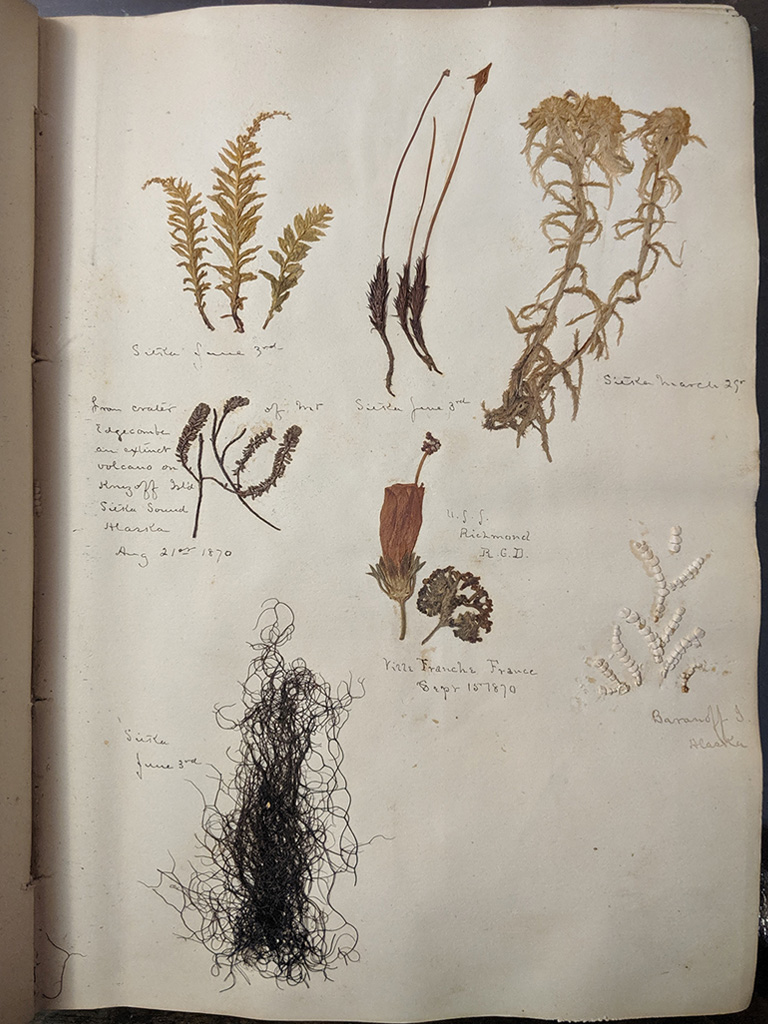 Sitka June 3rd
Sitka June 3rd
Sitka March 25
From crater of Mt
Edgecombe
an extinct
volcano on
Kruzoff Isl'd
Sitka Sound
Alaska
Aug 21st 1870
U.S.S.
Richmond
R.G.D.
Ville Franche France
Sept 15 1870
Baranoff I.
Alaska
Sitka
June 3rd